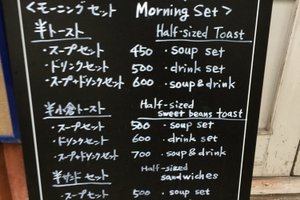 <モーニングセット Morning Set>
半トースト Half-sized Toast
・スープセット 450 ・soup set
・ドリンクセット 500 ・drink set
・スープ+ドリンクセット 600 ・soup & drink
半小倉トースト Half-sized sweet beans toast
・スープセット 500 ・soup set
・ドリンクセット 600 ・drink set
・スープ+ドリンクセット 700 ・soup & drink
半サンドセット Half-sized sandwiches
・スープセット 500 ・soup set